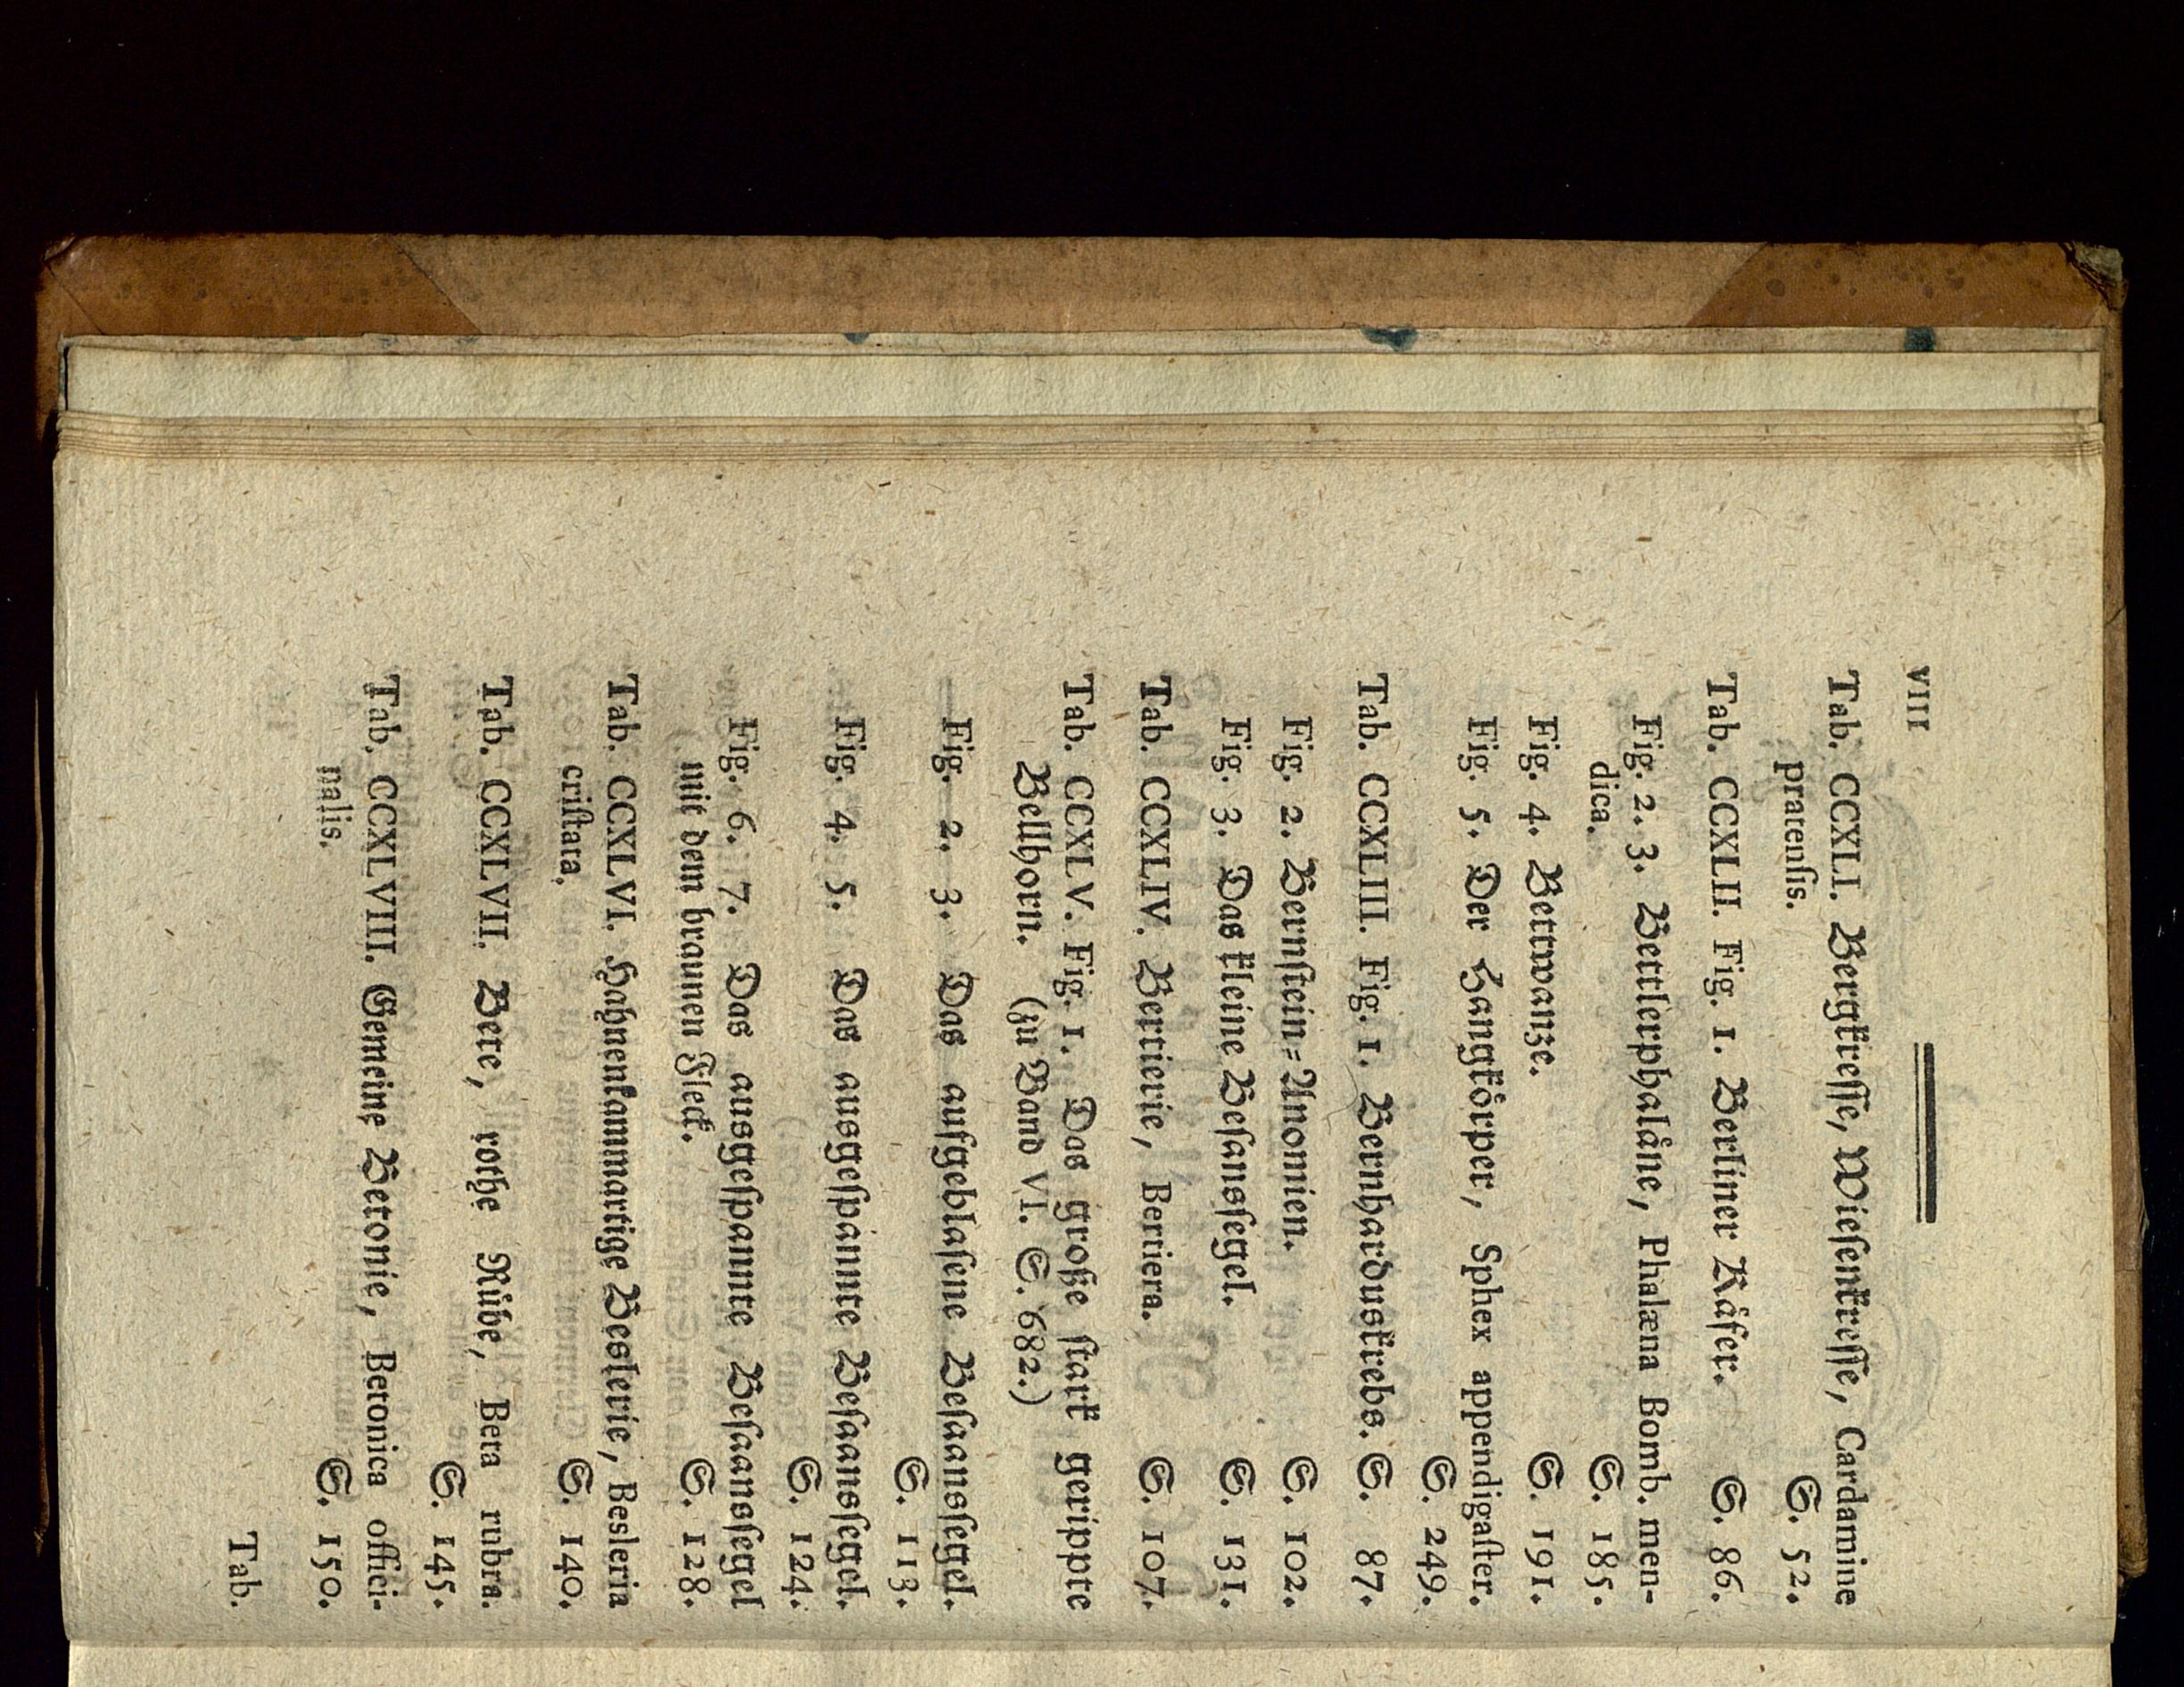 VIII
Tab. CCXLI. Bergkreſſe, Wieſenkreſſe, Cardamine
pratenſis. S. 52.
Tab. CCXLII. Fig. 1. Berliner Käfer. S. 86.
Fig. 2. 3. Bettlerphaläne, Phalæna Bomb. men-
dica. S. 185.
Fig. 4. Bettwanze. S. 191.
Fig. 5. Der Hangkörper, Sphex appendigaſter.
S. 249.
Tab. CCXLIII. Fig. 1. Bernharduskrebs. S. 87.
Fig. 2. Bernſtein=Anomien. S. 102.
Fig. 3. Das kleine Beſansſegel. S. 131.
Tab. CCXLIV. Bertierie, Bertiera. S. 107.
Tab. CCXLV. Fig. 1. Das große ſtark gerippte
Bellhorn. (zu Band VI. S. 682.)
Fig. 2. 3. Das aufgeblaſene Beſaansſegel.
S. 113.
Fig. 4. 5. Das ausgeſpannte Beſaansſegel.
S. 124.
Fig. 6. 7. Das ausgeſpannte Beſaansſegel
mit dem braunen Fleck. S. 128.
Tab. CCXLVI. Hahnenkammartige Beslerie, Besleria
criſtata. S. 140.
Tab. CCXLVII. Bete, rothe Rübe, Beta rubra.
S. 145.
Tab. CCXLVIII. Gemeine Betonie, Betonica offici-
nalis. S. 150.
Tab.